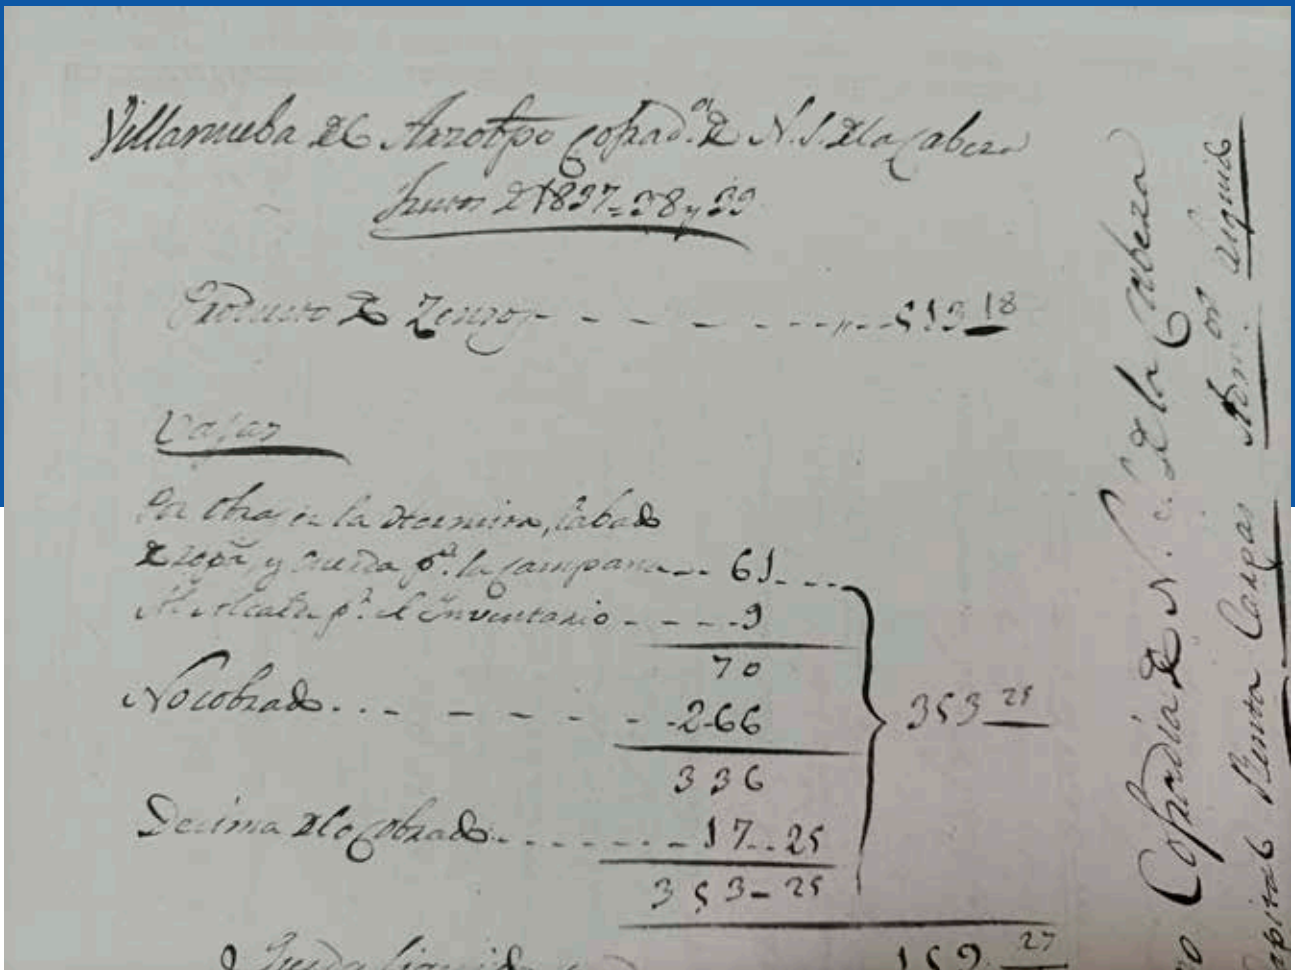 Villanueba del Arzobpo Cofrad.a de N. S. de la Cabeza
Frutos de 1837=38 y 39
Producto de Zensos - - - - - - - - 513 18
Vajas
Por obras en la Hermita, labado
de ropa, y cuerda p.a la campana - - 61 - - -
Al Alcalde p.r el Inventario - - - - 9
70
No cobrado . . - - - - - - 266
336
353 25
Decima de lo Cobrado - - - - - - - 17 - - 25
353 - 25
Queda liquido 159 27
Cofradia de N. S. de la Cabeza
Capital Renta Cargas Liquido